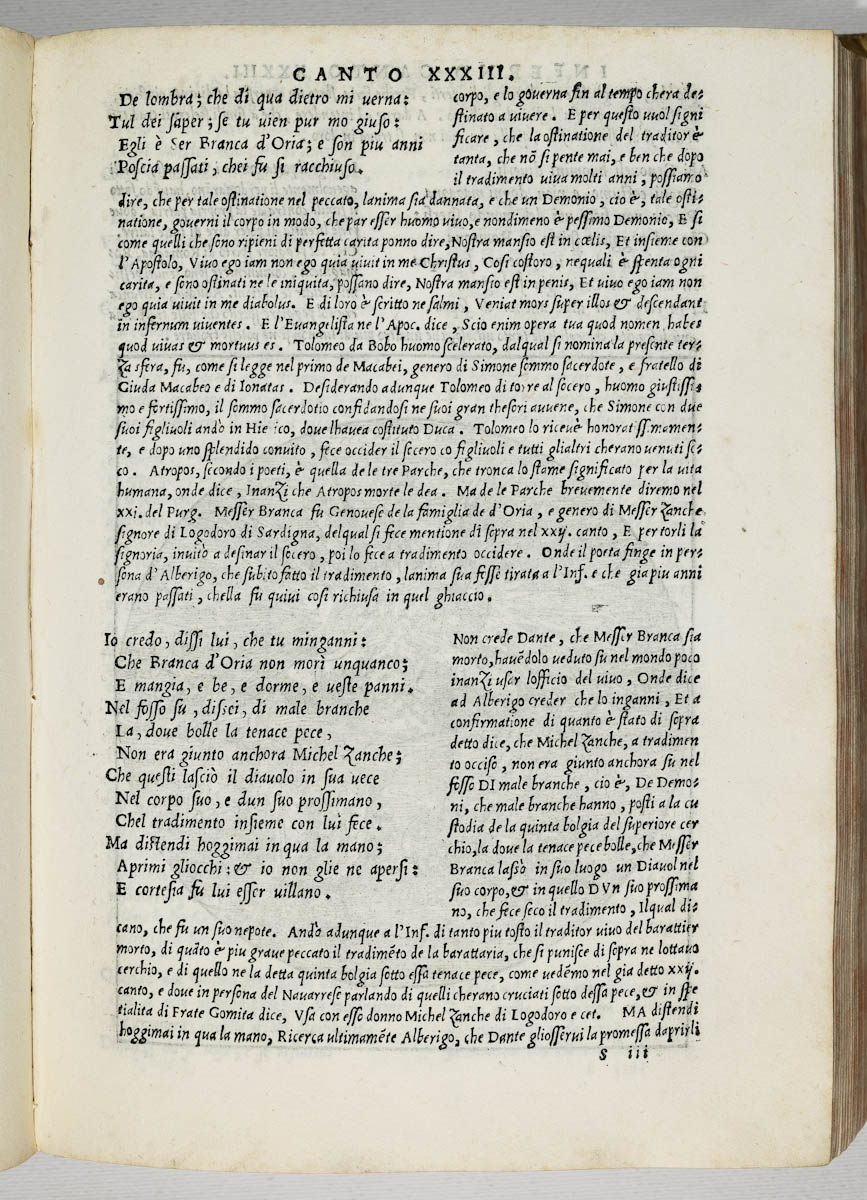 CANTO XXXIII.
De lombra; che di qua dietro mi verna:
Tul dei saper; se tu vien pur mo giuso:
Egli è Ser Branca d'Oria; e son piu anni
Poscia passati, chei fu si racchiuso.
corpo, e lo governa fin al tempo chera de-
stinato a vivere. E per questo vuol signi
ficare, che la ostinatione del traditor è
tanta, che nõ si pente mai, e ben che dopo
il tradimento viva molti anni, possiamo
dire, che per tale ostinatione nel peccato, lanima sia dannata, e che un Demonio, cio è, tale osti-
natione, governi il corpo in modo, che par esser huomo vivo, e nondimeno è pessimo Demonio, E si
come quelli che sono ripieni di perfetta carita ponno dire, Nostra mansio est in cœlis, Et insieme con
l'Apostolo, Vivo ego iam non ego quia vivit in me Christus, Cosi costoro, ne quali è spenta ogni
carita, e sono ostinati ne le iniquita, possano dire, Nostra mansio est in penis, Et vivo ego iam non
ego quia vivit in me diabolus. E di loro è scritto ne salmi, Veniat mors super illos & descendant
in infernum viventes. E l'Evangelista ne l'Apoc. dice, Scio enim opera tua quod nomen habes
quod vivas & mortuus es. Tolomeo da Bobo huomo scelerato, dalqual si nomina la presente ter-
za sfera, fu, come si legge nel primo de Macabei, genero di Simone sommo sacerdote, e fratello di
Giuda Macabeo e di Ionatas. Desiderando adunque Tolomeo di torre al socero, huomo giustissi-
mo e fortissimo, il sommo sacerdotio confidandosi ne suoi gran thesori avvene, che Simone con due
suoi figlivoli andò in Hie ico, dove lhavea costituto Duca. Tolomeo lo ricevè honorat ss.mamen-
te, e dopo uno splendido convito, fece occider il socero co figlivoli e tutti glialtri cherano venuti se-
co. Atropos, secondo i poeti, è quella de le tre Parche, che tronca lo stame significato per la vita
humana, onde dice, Inanzi che Atropos morte le dea. Ma de le Parche brevemente diremo nel
xxi. del Purg. Messer Branca fu Genovese de la famiglia de d'Oria, e genero di Messer Zanche
signore di Logodoro di Sardigna, delqual si fece mentione di sopra nel xxij. canto, E per torli la
signoria, invitò a desinar il socero, poi lo fece a tradimento occidere. Onde il poeta finge in per-
sona d'Alberigo, che subito fatto il tradimento, lanima sua fosse tirata a l'Inf. e che gia piu anni
erano passati, chella fu quivi cosi richiusa in quel ghiaccio.
Io credo, dissi lui, che tu minganni:
Che Branca d'Oria non morì unquanco;
E mangia, e be, e dorme, e veste panni.
Nel fosso su, dissei, di male branche
La, dove bolle la tenace pece,
Non era giunto anchora Michel Zanche;
Che questi lasciò il diavolo in sua vece
Nel corpo suo, e dun suo prossimano,
Chel tradimento insieme con lui fece.
Ma distendi hoggimai in qua la mano;
Aprimi gliocchi: & io non glie ne apersi:
E cortesia fu lui esser villano.
Non crede Dante, che Messer Branca sia
morto, havẽdolo veduto su nel mondo poco
inanzi user lofficio del vivo, Onde dice
ad Alberigo creder che lo inganni, Et a
confirmatione di quanto è stato di sopra
detto dice, che Michel Zanche, a tradimen
to occiso, non era giunto anchora su nel
fosso DI male branche, cio è, De Demo-
ni, che male branche hanno, posti a la cu
stodia de la quinta bolgia del superiore cer
chio, la dove la tenace pece bolle, che Messer
Branca lassò in suo luogo un Diavol nel
suo corpo, & in quello DVn suo prossima
no, che fece seco il tradimento, Ilqual di-
cano, che fu un suo nepote. Andò adunque a l'Inf. di tanto piu tosto il traditor vivo del barattier
morto, di quãto è piu grave peccato il tradimẽto de la barattaria, che si punisce di sopra ne lottavo
cerchio, e di quello ne la detta quinta bolgia sotto essa tenace pece, come vedẽmo nel gia detto xxij.
canto, e dove in persona del Navarrese parlando di quelli cherano cruciati sotto dessa pece, & in spe
tialita di Frate Gomita dice, Vsa con esso donno Michel Zanche di Logodoro e cet. MA distendi
hoggimai in qua la mano, Ricerca ultimamẽte Alberigo, che Dante gliosservi la promessa daprirli
S iii